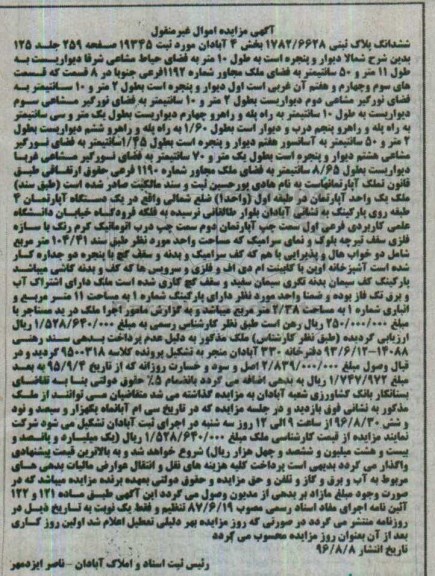 آگهی مزایده اموال غیرمنقول
ششدانگ پلاک ثبتی ۱۷۸۲/۶۶۲۸ بخش ۴ آبادان مورد ثبت ۱۹۳۴۵ صفحه ۲۵۹ جلد ۱۲۵
بدین شرح شمالا دیوار و پنجره است به طول ۱۰ متر به فضای حیاط مشاعی شرقا دیواریست به
طول ۱۱ متر و ۵۰ سانتیمتر به فضای ملک مجاور شماره ۱۱۹۲فرعی جنوبا در ۸ قسمت که قسمت
های سوم وچهارم و هفتم آن غربی است اول دیوار و پنجره است بطول ۲ متر و ۱۰ سانتیمتر به
فضای نورگیر مشاعی دوم دیواریست بطول ۲ متر و ۱۰ سانتیمتر به فضای نورگیر مشاعی سوم
دیواریست به طول ۱۰ سانتیمتر به راه پله و راهرو چهارم دیواریست بطول یک متر و سی سانتیمتر
به راه پله و راهرو پنجم درب و دیوار است بطول ۱/۶۰ به راه پله و راهرو ششم دیواریست بطول
۲ متر و ۵۰ سانتیمتر به آسانسور هفتم دیوار و پنجره است بطول ۱/۴۵سانتیمتر به فضای نورگیر
مشاعی هشتم دیوار و پنجره است بطول یک متر و ۷۰ سانتیمتر به فضای نورگیر مشاعی غربا
دیواریست بطول ۸/۶۵ سانتیمتر به فضای ملک مجاور شماره ۱۱۹۰ فرعی حقوق ارتفاقی طبق
قانون تملک آپارتمانهاست به نام هادی پورحسین ثبت و سند مالکیت صادر شده است (طبق سند)
ملک یک واحد آپارتمان در طبقه اول (واحد۱) ضلع شمالی واقع در یک دستگاه آپارتمان ۴
طبقه روی پارکینگ به نشانی آبادان بلوار طالقانی نرسیده به فلکه فرودگاه خیابان دانشگاه
علمی کاربردی فرعی اول سمت چپ آپارتمان دوم سمت چپ درب اتوماتیک کرم رنگ با سازه
فلزی سقف تیرچه بلوک و نمای سرامیک که مساحت واحد مورد نظر طبق سند ۱۰۴/۴۱ متر مربع
شامل دو خواب هال و پذیرایی با هم که کف سرامیک و بدنه و سقف گچ با پنجره دو جداره کار
شده است آشپزخانه اوپن با کابینت ام دی اف و فلزی و سرویس ها که کف و بدنه کاشی میباشد
پارکینگ کف سیمان بدنه نگری سیمان سفید و سقف گچ کاری شده است ملک دارای اشتراک آب
و برق تک فاز بوده و ضمنا واحد مورد نظر دارای پارکینگ شماره ۱ به مساحت ۱۱ متر مربع و
انباری شماره ۱ به مساحت ۲/۳۸ متر مربع میباشد و به گزارش مامور اجرا ملک در ید مستاجر با
مبلغ ۲۵۰/۰۰۰/۰۰۰ ریال رهن است طبق نظر کارشناس رسمی به مبلغ ۱/۵۲۸/۶۴۰/۰۰۰ ریال
ارزیابی گردیده (طبق نظر کارشناس) ملک مذکور به دلیل عدم پرداخت بدهی سند رهنی
۱۴۰۸۸-۹۳/۶/۱۲ دفترخانه ۳۳۰ آبادان منجر به تشکیل پرونده کلاسه ۹۵۰۰۳۱۸ گردید و در
قبال وصول مبلغ ۲/۸۳۹/۰۰۰/۰۰۰ اصل و سود و خسارت روزانه که از تاریخ ۹۵/۹/۴ به بعد
مبلغ ۱/۷۴۷/۹۷۲ ریال به بدهی اضافه می گردد بانضمام ۵٪ حقوق دولتی بنا به تقاضای
بستانکار بانک کشاورزی شعبه آبادان به مزایده گذاشته می شد متقاضیان می توانند از ملک
مذکور به نشانی فوق بازدید و در جلسه مزایده که در تاریخ سی ام آبانماه یکهزار و سیصد و نود
و شش ۹۶/۸/۳۰ از ساعت ۹ الی ۱۲ روز سه شنبه در اجرای ثبت آبادان تشکیل می شود شرکت
نمایند مزایده از قیمت کارشناسی ملک مبلغ ۱/۵۲۸/۶۴۰/۰۰۰ ریال (یک میلیارد و پانصد و
بیست و هشت میلیون و ششصد و چهل هزار ریال) شروع خواهد شد و به بالاترین قیمت پیشنهادی
واگذار می گردد بدیهی است پرداخت کلیه هزینه های نقل و انتقال عوارض مالیات بدهی های
مربوط به آب و برق و گاز و تلفن و حق مزایده و حقوق دولتی بعهده برنده مزایده میباشد که در
صورت وجود مبلغ مازاد بر بدهی از مدیون وصول می گردد این آگهی طبق ماده ۱۲۱ و ۱۲۲
آئین نامه اجرای مفاد اسناد رسمی مصوب ۸۷/۶/۱۹ تنظیم و فقط یک نوبت به تاریخ ذیل در
روزنامه منتشر می گردد در صورتی که روز مزایده بهر دلیلی تعطیل اعلام شد اولین روز کاری
بعد از آن بعنوان روز مزایده محسوب می گردد
تاریخ انتشار ۹۶/۸/۸
رئیس ثبت اسناد و املاک آبادان - ناصر ایزدمهر